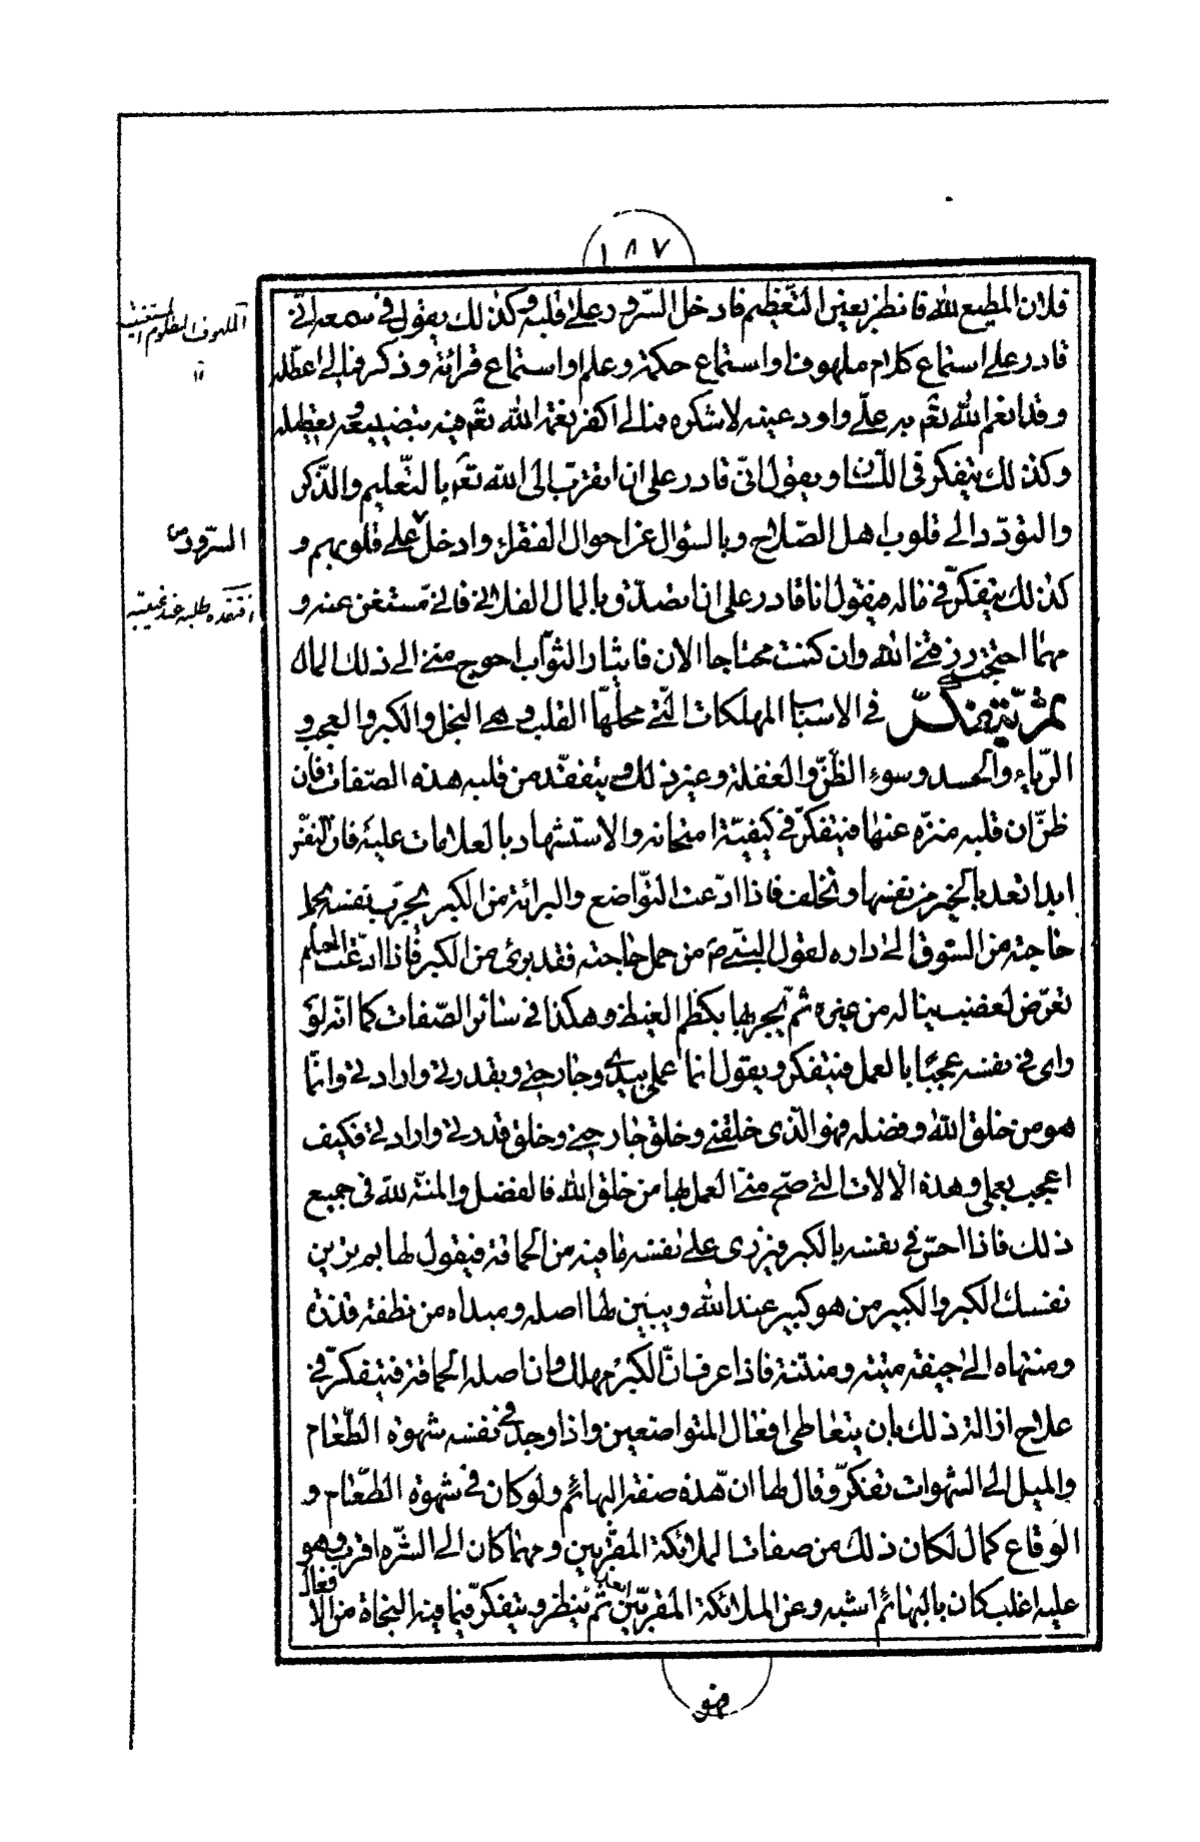 ١٨٧
فلان المطيع لله فانظر بعين التعظيم فادخل السّرور على قلبه وكذلك يقول في سمعه انّي
قادر على استماع كلام ملهوف او استماع حكمة وعلم او استماع قرائة وذكر فمالي اعطّله
وقد انعم الله تعٓ به علّي واودعنيه لاشكره فمالي اكفر نعمة الله تعٓ فيه بتضييعه وتعطيله
وكذلك يتفكر في اللّسان ويقول انّي قادر على ان اتقرّب الى الله تعٓ بالتّعليم والذّكر
والتودّد الى قلوب اهل الصّلاح وبالسّؤال عن احوال الفقراء وادخل على قلوبهم و
كذلك يتفكّر في ماله فيقول انا قادر على ان اتصدّق بالمال الفلاني فاني مستغن عنه و
مهما احتجت رزقني الله وان كنت محتاجا الان فانا الى ثواب الايثار احوج منّي الى ذلك المال
ثمّ يتفكّر في الاسباب المهلكات الّتي محلّها القلب وهي البخل والكبر والعجب و
الرّياء والحسد وسوء الظّنّ والغفلة وغير ذلك ويتفقّد من قلبه هذه الصّفات فان
ظنّ ان قلبه منزه عنها فيتفكّر في كيفيّة امتحانه والاستشهاد بالعلامات عليه فان النفس
ابدا تعد بالخير من نفسها وتخلف فاذا ادّعت التّواضع والبرائة من الكبر يجرّب نفسه بحمل
حاجته من السّوق الى داره لقول النبيّ صٓ من حمل حاجته فقد برئ من الكبر فاذا ادّعت الحلم
تعرّض لغضب يناله من غيره ثمّ يجربها بكظم الغيظ وهكذا في سائر الصّفات كما انه لو
راى في نفسه عجبًا بالعمل فيتفكر ويقول انما عملي بيدي وجارحتي وبقدرتي وارادتي وانّما
هو من خلق الله وفضله فهو الّذي خلقني وخلق جارحتي وخلق قدرتي وارادتي فكيف
اعجب بعملي وهذه الالات الّتي صحّ منّي العمل بها من خلق الله فالفضل والمنّة لله في جميع
ذلك فاذا احسّ في نفسه بالكبر فيزرى على نفسه ما فيه من الحماقة فيقول لها بم ترين
نفسك الكبر والكبير من هو كبير عند الله ويبين لها اصله ومبداه من نطفة قذرة
ومنتهاه الى جيفة ميتة ومنتنة فاذا عرف انّ الكبر مهلك وان اصله الحماقة فيتفكّر في
علاج ازالة ذلك بان يتعاطى افعال المتواضعين واذا وجد في نفسه شهوة الطّعام
والميل الى الشهوات تفكّر وقال لها انّ هذه صفة البهائم ولو كان في شهوة الطّعام و
الوقاع كمال لكان ذلك من صفات الملائكة المقرّبين ومهما كان الى الشّره اقرب وهو
عليه اغلب كان بالبهائم اشبه وعن الملائكة المقربّين ابعد ثم ينظر ويتفكّر فيما فيه النجاة من الافعال
فهو
الملهوف المظلوم المستغيث
١٢
السّرور ص
افتقده طلبه عند غيبته